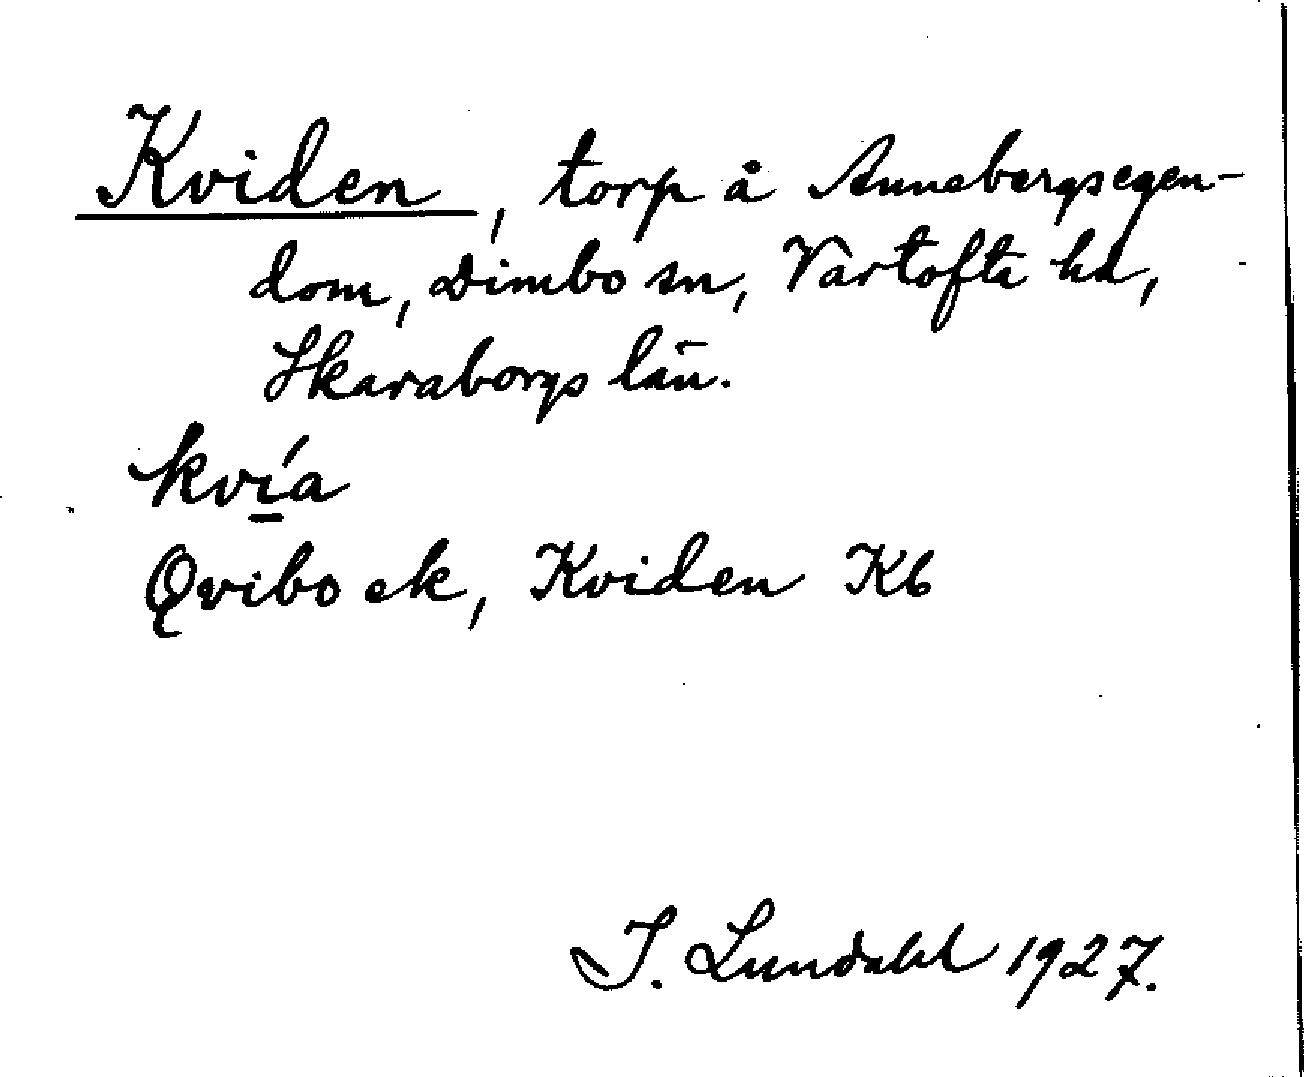 Kviden, torp å Annebergsegen-
dom, Dimbo sn, Vartofta hd,
Skaraborgs län.
kvía
Qvibo ek, Kviden Kb
I. Lundahl 1927.